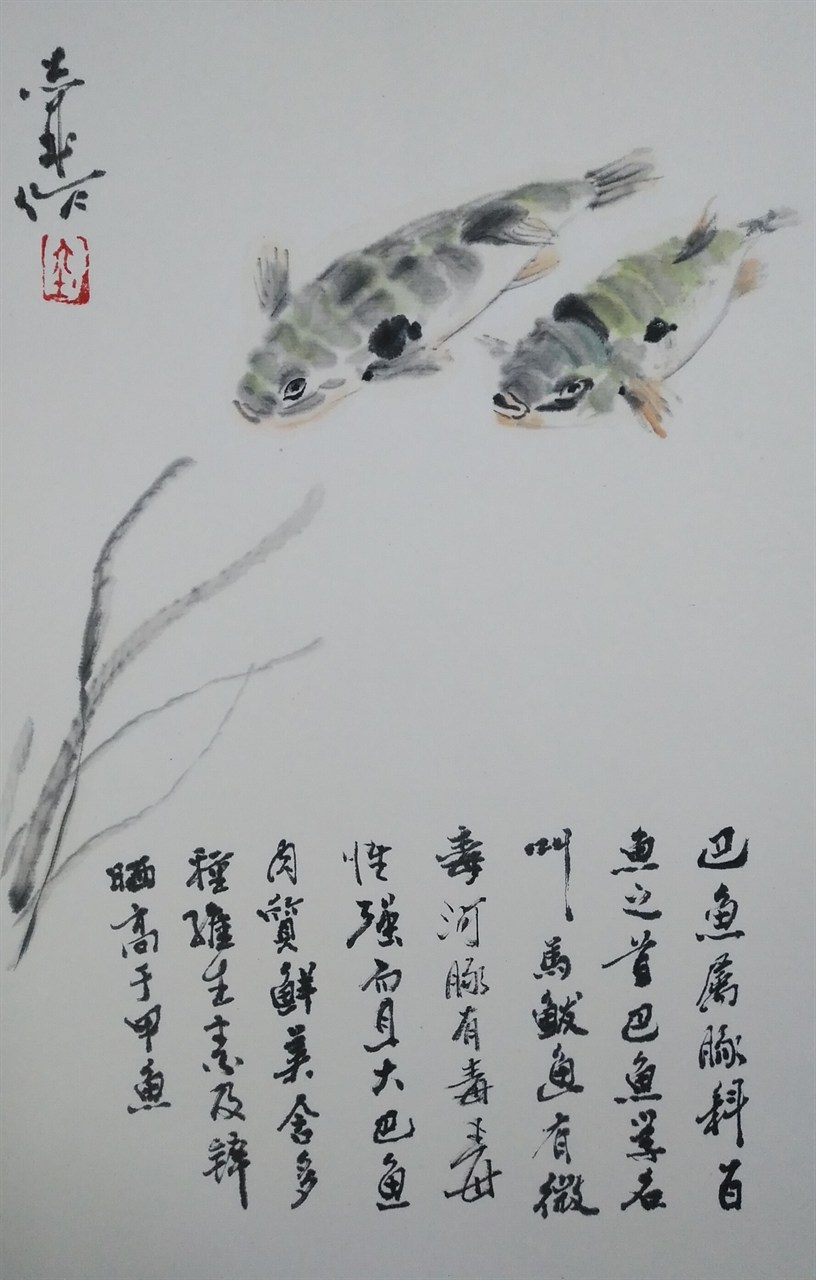 巴鱼属豚科百
鱼之首巴鱼学名
叫馬鲅鱼有微
毒河豚有毒毒
性强而且大巴鱼
肉質鲜美含多
種維生素及鋅
晒高于甲鱼
作